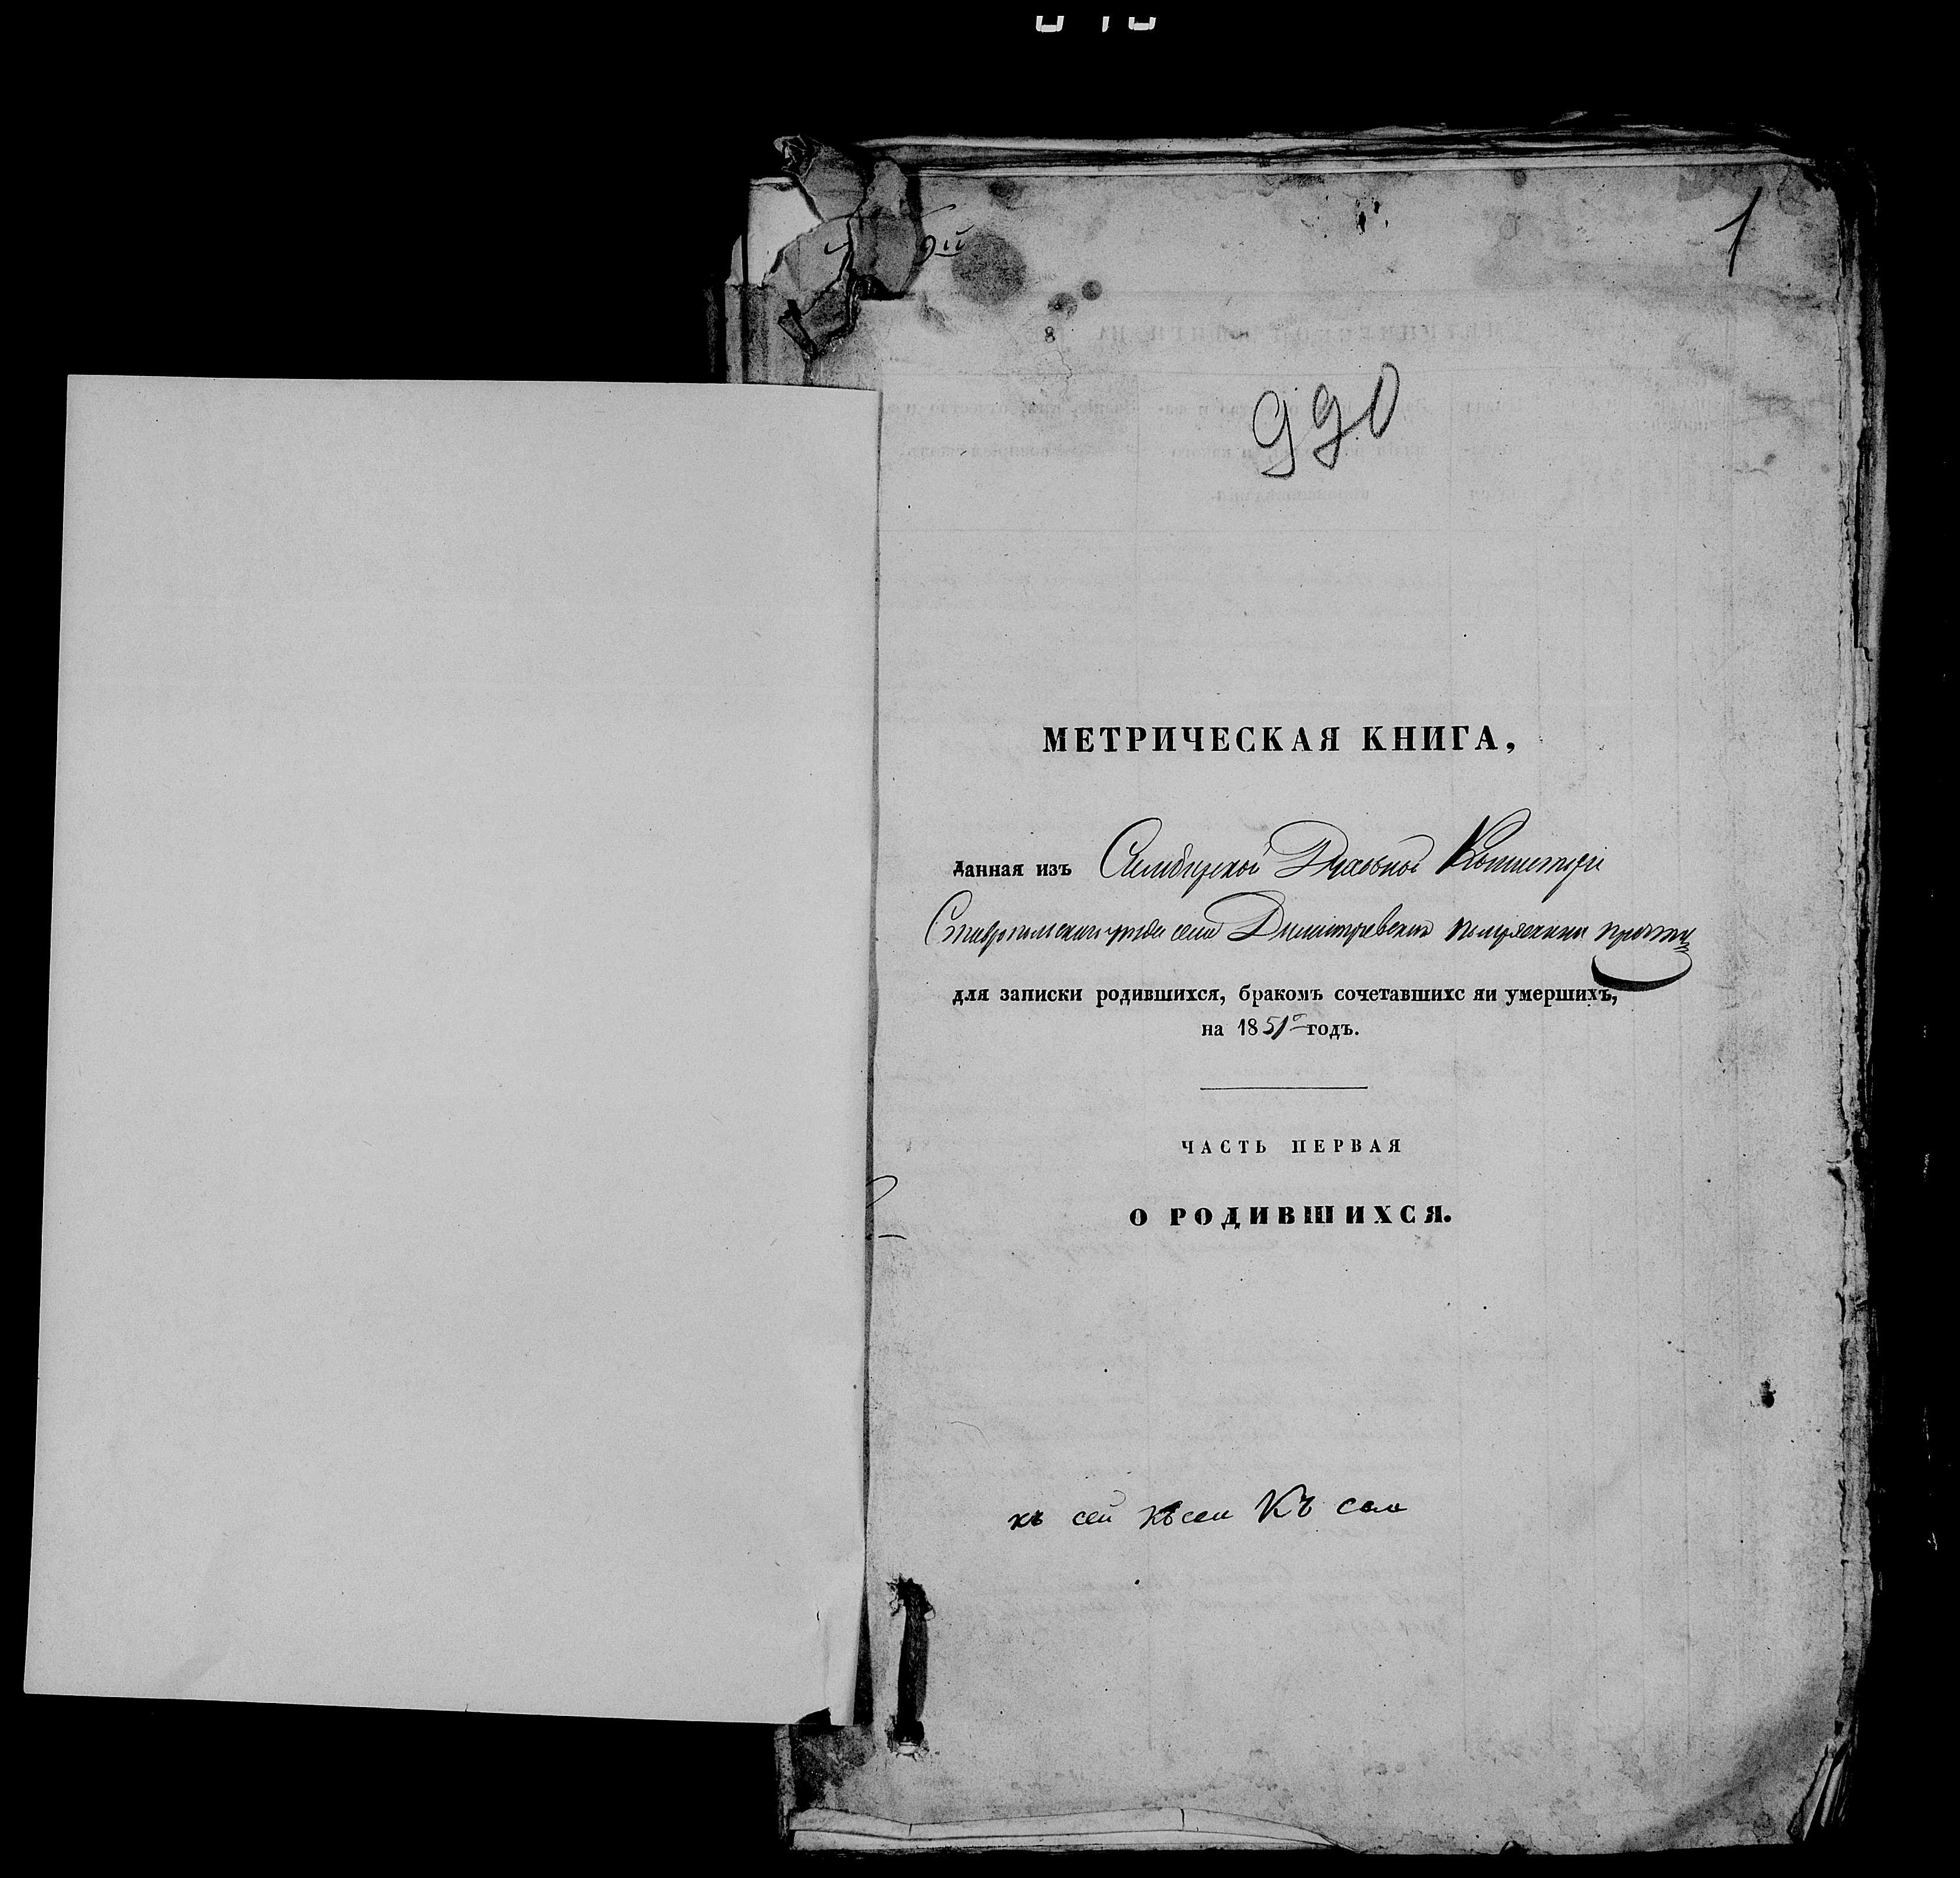 1
990
МЕТРИЧЕСКАЯ КНИГА,
данная изъ Симбирской Духовной Консисторіи
Ставропольскаго уезда села Димитревскаго
для записки родившихся, бракомъ сочетавшихс яи умершихъ,
на 1851й годъ.
ЧАСТЬ ПЕРВАЯ
О РОДИВШИХСЯ.
къ сей къ сей Къ сей